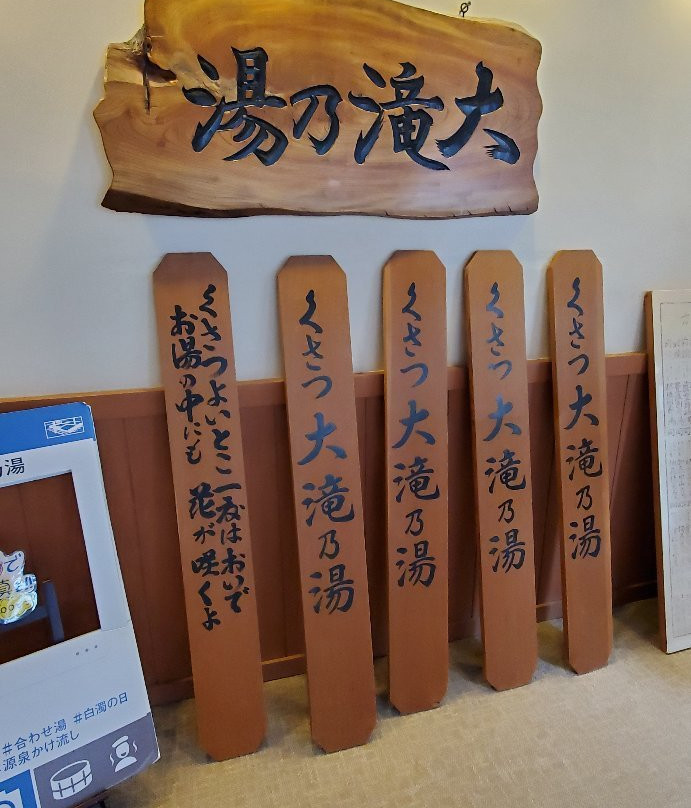 大滝乃湯
くさつ 大滝乃湯
くさつ 大滝乃湯
くさつ 大滝乃湯
くさつ 大滝乃湯
くさつよいとこ 一度はおいで
お湯の中にも 花が咲くよ
湯
#合わせ湯 #白濁の日
#源泉かけ流し